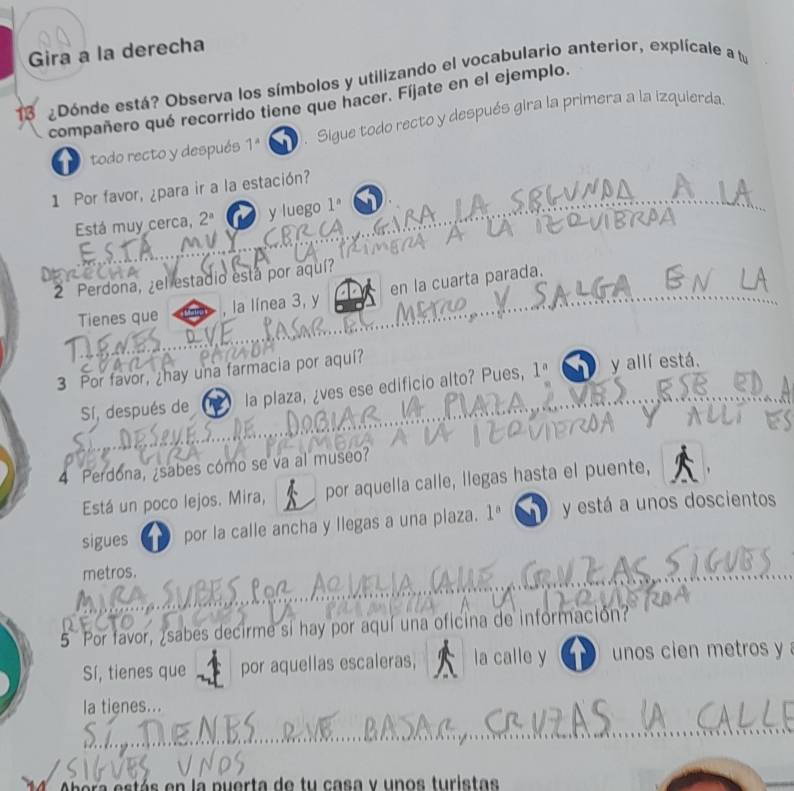 Gira a la derecha
13 ¿Dónde está? Observa los símbolos y utilizando el vocabulario anterior, explícale a tu
compañero qué recorrido tiene que hacer. Fíjate en el ejemplo.
todo recto y después 1ª . Sigue todo recto y después gira la primera a la izquierda.
1 Por favor, ¿para ir a la estación?
Está muy cerca, 2ª y luego 1ª .
ESTÁ MUY CERCA, GIRA LA SEGUNDA A LA
DERECHA Y GIRA LA PRIMERA A LA IZQUIERDA
2 Perdona, ¿el estadio está por aquí?
Tienes que Metro , la línea 3, y en la cuarta parada.
TIENES QUE PASAR EL METRO, Y SALGA EN LA
CUARTA PARADA
3 Por favor, ¿hay una farmacia por aquí?
Sí, después de la plaza, ¿ves ese edificio alto? Pues, 1ª y allí está.
SÍ DESPUES DE DOBIAR LA PLAZA, ¿VES ESE ED. A
PUES GIRA LA PRIMERA A LA IZQUIERDA Y ALLÍ ES
4 Perdona, ¿sabes cómo se va al museo?
Está un poco lejos. Mira, por aquella calle, llegas hasta el puente, ,
sigues por la calle ancha y llegas a una plaza. 1ª y está a unos doscientos
metros.
MIRA, SUBES POR AQUELLA CALLE, CRUZAS, SIGUES
RECTO, SIGUES LA PRIMERA A LA IZQUIERDA
5 Por favor, ¿sabes decirme si hay por aquí una oficina de información?
Sí, tienes que por aquellas escaleras, la calle y unos cien metros y a
la tienes...
SÍ, TIENES QUE BAJAR, CRUZAS LA CALLE
Y SIGUES UNOS
14 Ahora estás en la puerta de tu casa y unos turistas